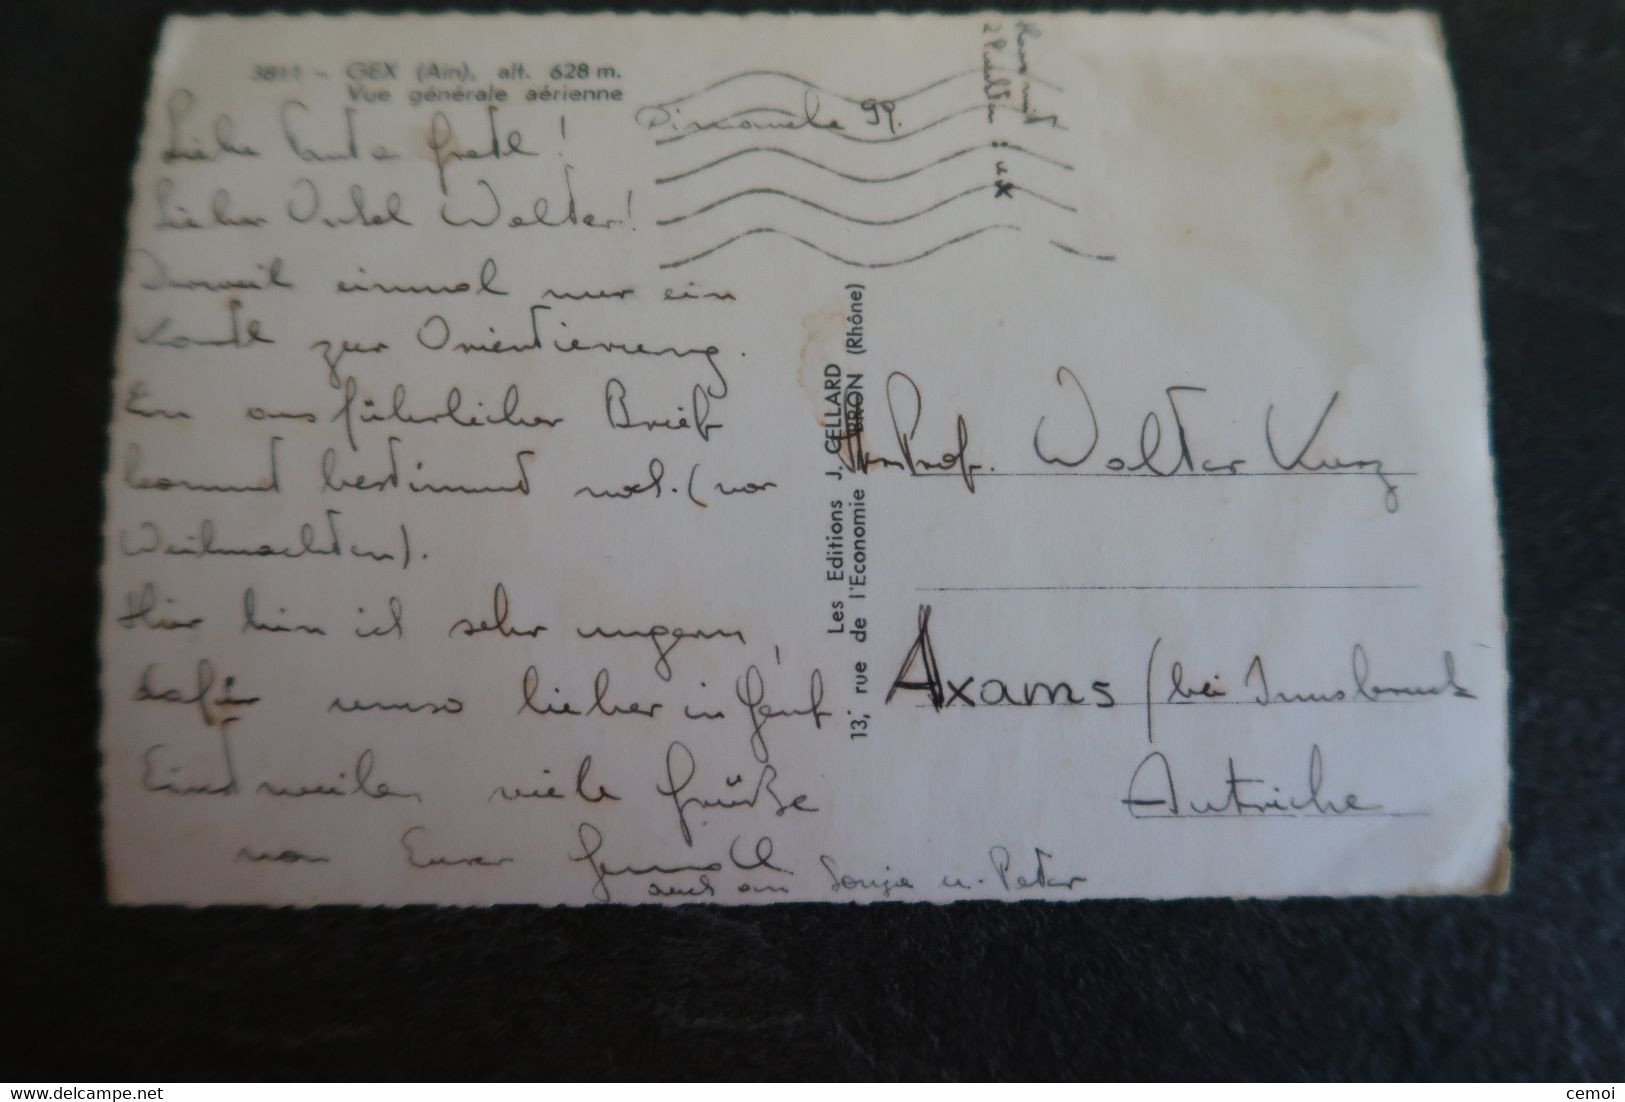 3811 - GEX (Ain), alt. 628 m.
Vue générale aérienne
Liebe Tante Gretl!
Lieber Onkel Walter!
Derweil einmal nur ein
Karte zur Orientierung.
Ein ausführlicher Brief
kommt bestimmt noch. (vor
Weihnachten).
Hier bin ich sehr ungern,
dafür umso lieber in Genf
Einstweilen viele Grüße
von Eurer
auch an Sonja u. Peter
Dimanche
Les Editions J. CELLARD
13, rue de l'Economie BRON (Rhône)
Prof. Walter Kunz
Axams / bei Innsbruck
Autriche
cemoi